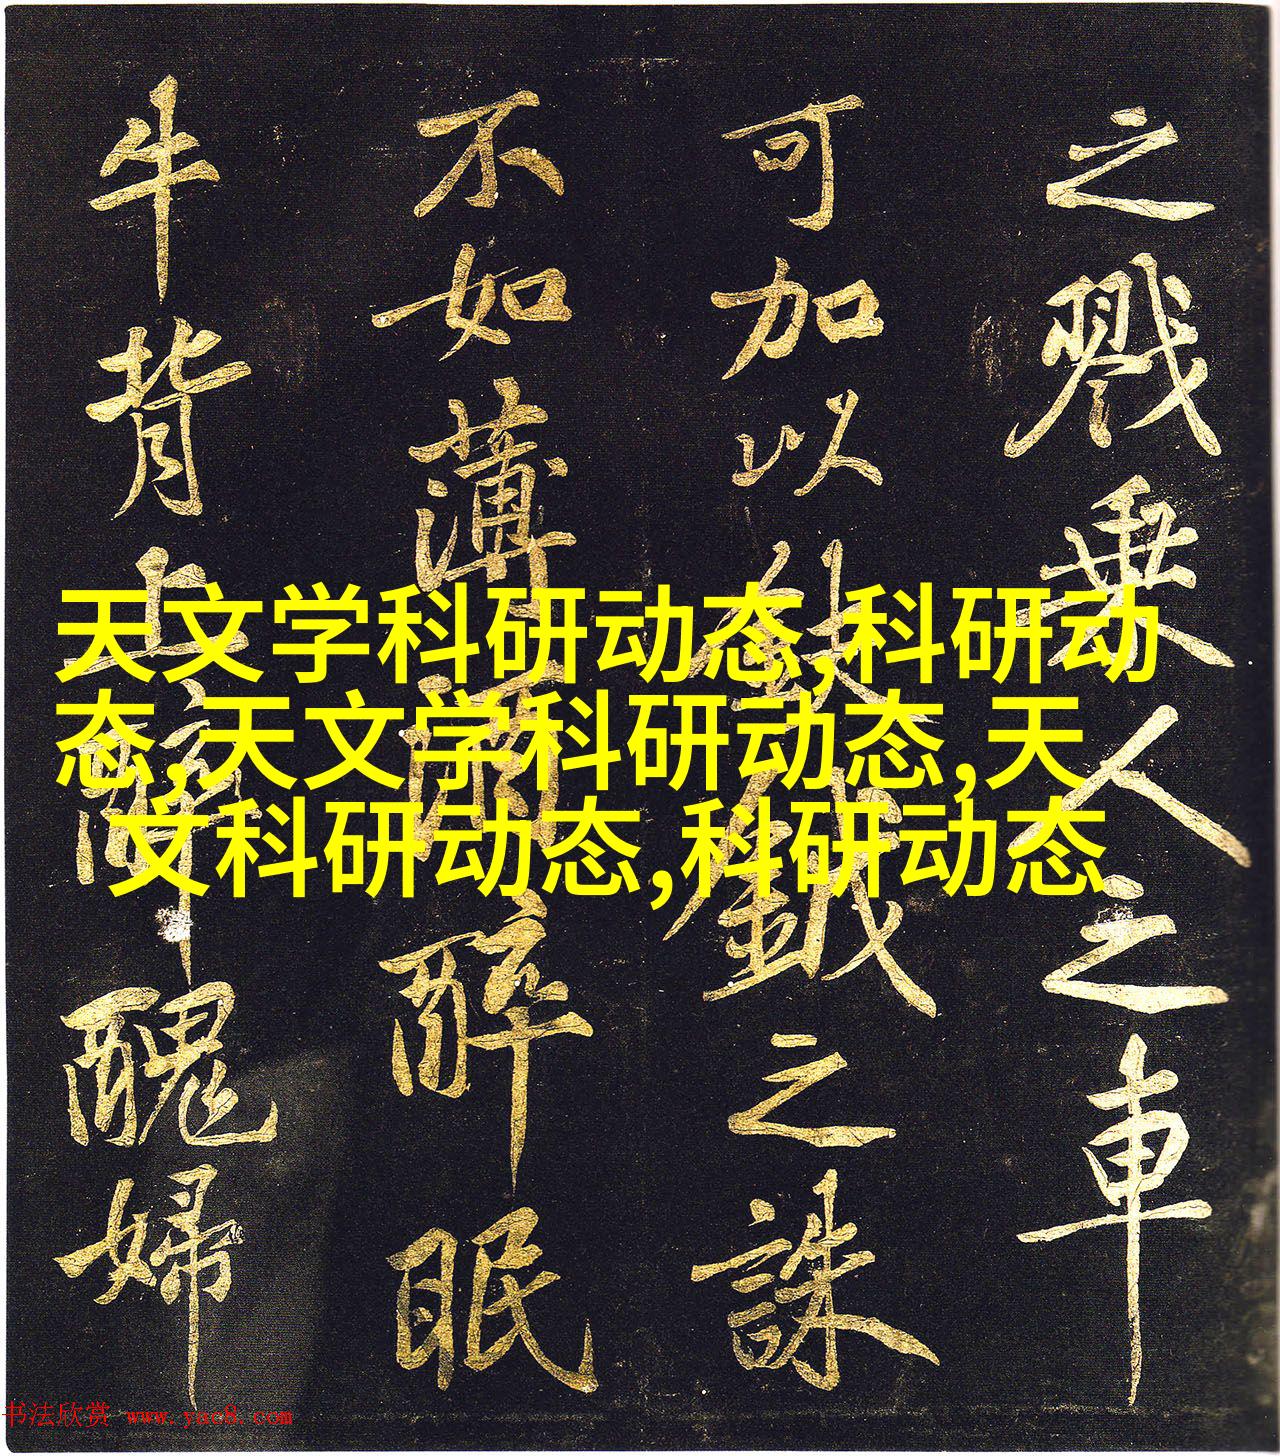 之戮乘人之車
可加以鉞之誅
不如薄醉眠
牛背上醜婦
天文学科研动态,科研动
态,天文学科研动态,天
文科研动态,科研动态
书法欣赏 www.yac8.com